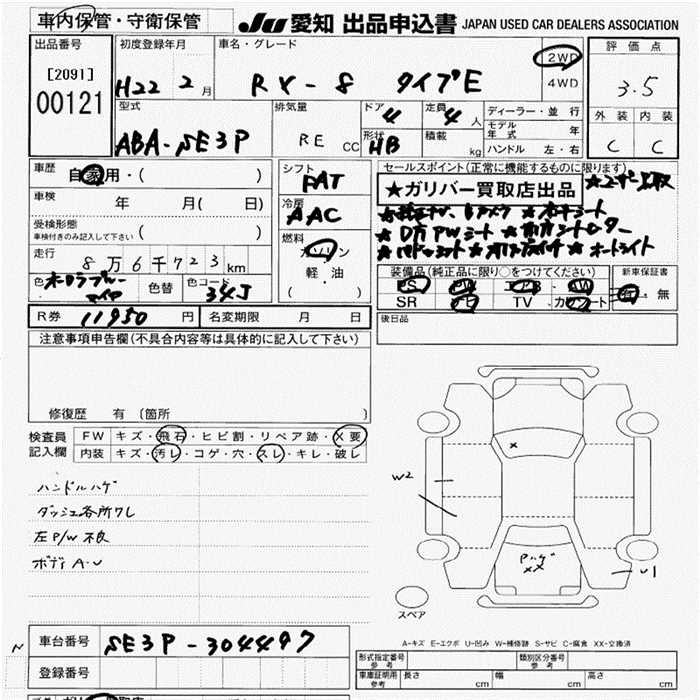 車内保管・守衛保管 JU 愛知 出品申込書 JAPAN USED CAR DEALERS ASSOCIATION
出品番号 [2091] 00121
初度登録年月 H22 2月
車名・グレード RX-8 タイプE
2WD 4WD
評価点 3.5
外装 内装 C C
型式 ABA-SE3P
排気量 RE CC
ドア 4 形状 HB
定員 4人 積載 kg
ディーラー・並行
モデル年式 年
ハンドル 左・右
車歴 自家用・( )
車検 年 月( 日)
受検形態 車検付きのみ記入して下さい ( )
走行 8万6千723km
色 オーロラブルーマイカ 色替 色コード 34J
シフト FAT
冷房 AAC
燃料 ガソリン 軽・油 ( )
セールスポイント(正常に機能するものに限ります)
★ガリバー買取店出品 ★ユーザー買取
★ ★ ★本革シート
★D席PWシート ★
★ ★ ★オートライト
装備品(純正品に限り○をつけてください) 新車保証書
PS PW エアB AW 有・無
SR ナビ TV カワシート
R券 11950円 名変期限 月 日
後日品
注意事項申告欄(不具合内容等は具体的に記入して下さい)
修復歴 有 [箇所 ]
検査員記入欄 FW キズ・飛石・ヒビ割・リペア跡・X要
内装 キズ・汚レ・コゲ・穴・スレ・キレ・破レ
ハンドルハゲ
ダッシュ各所ワレ
左P/W不良
ボディA・U
W2
×
Pハゲ
××
U1
スペア
A-キズ E-エクボ U-凹み W-補修跡 S-サビ C-腐食 XX-交換済
N 車台番号 SE3P-304497
登録番号
形式指定番号 参考 類別区分番号 参考
車庫証明用 参考 長さ cm 幅 cm 高さ cm